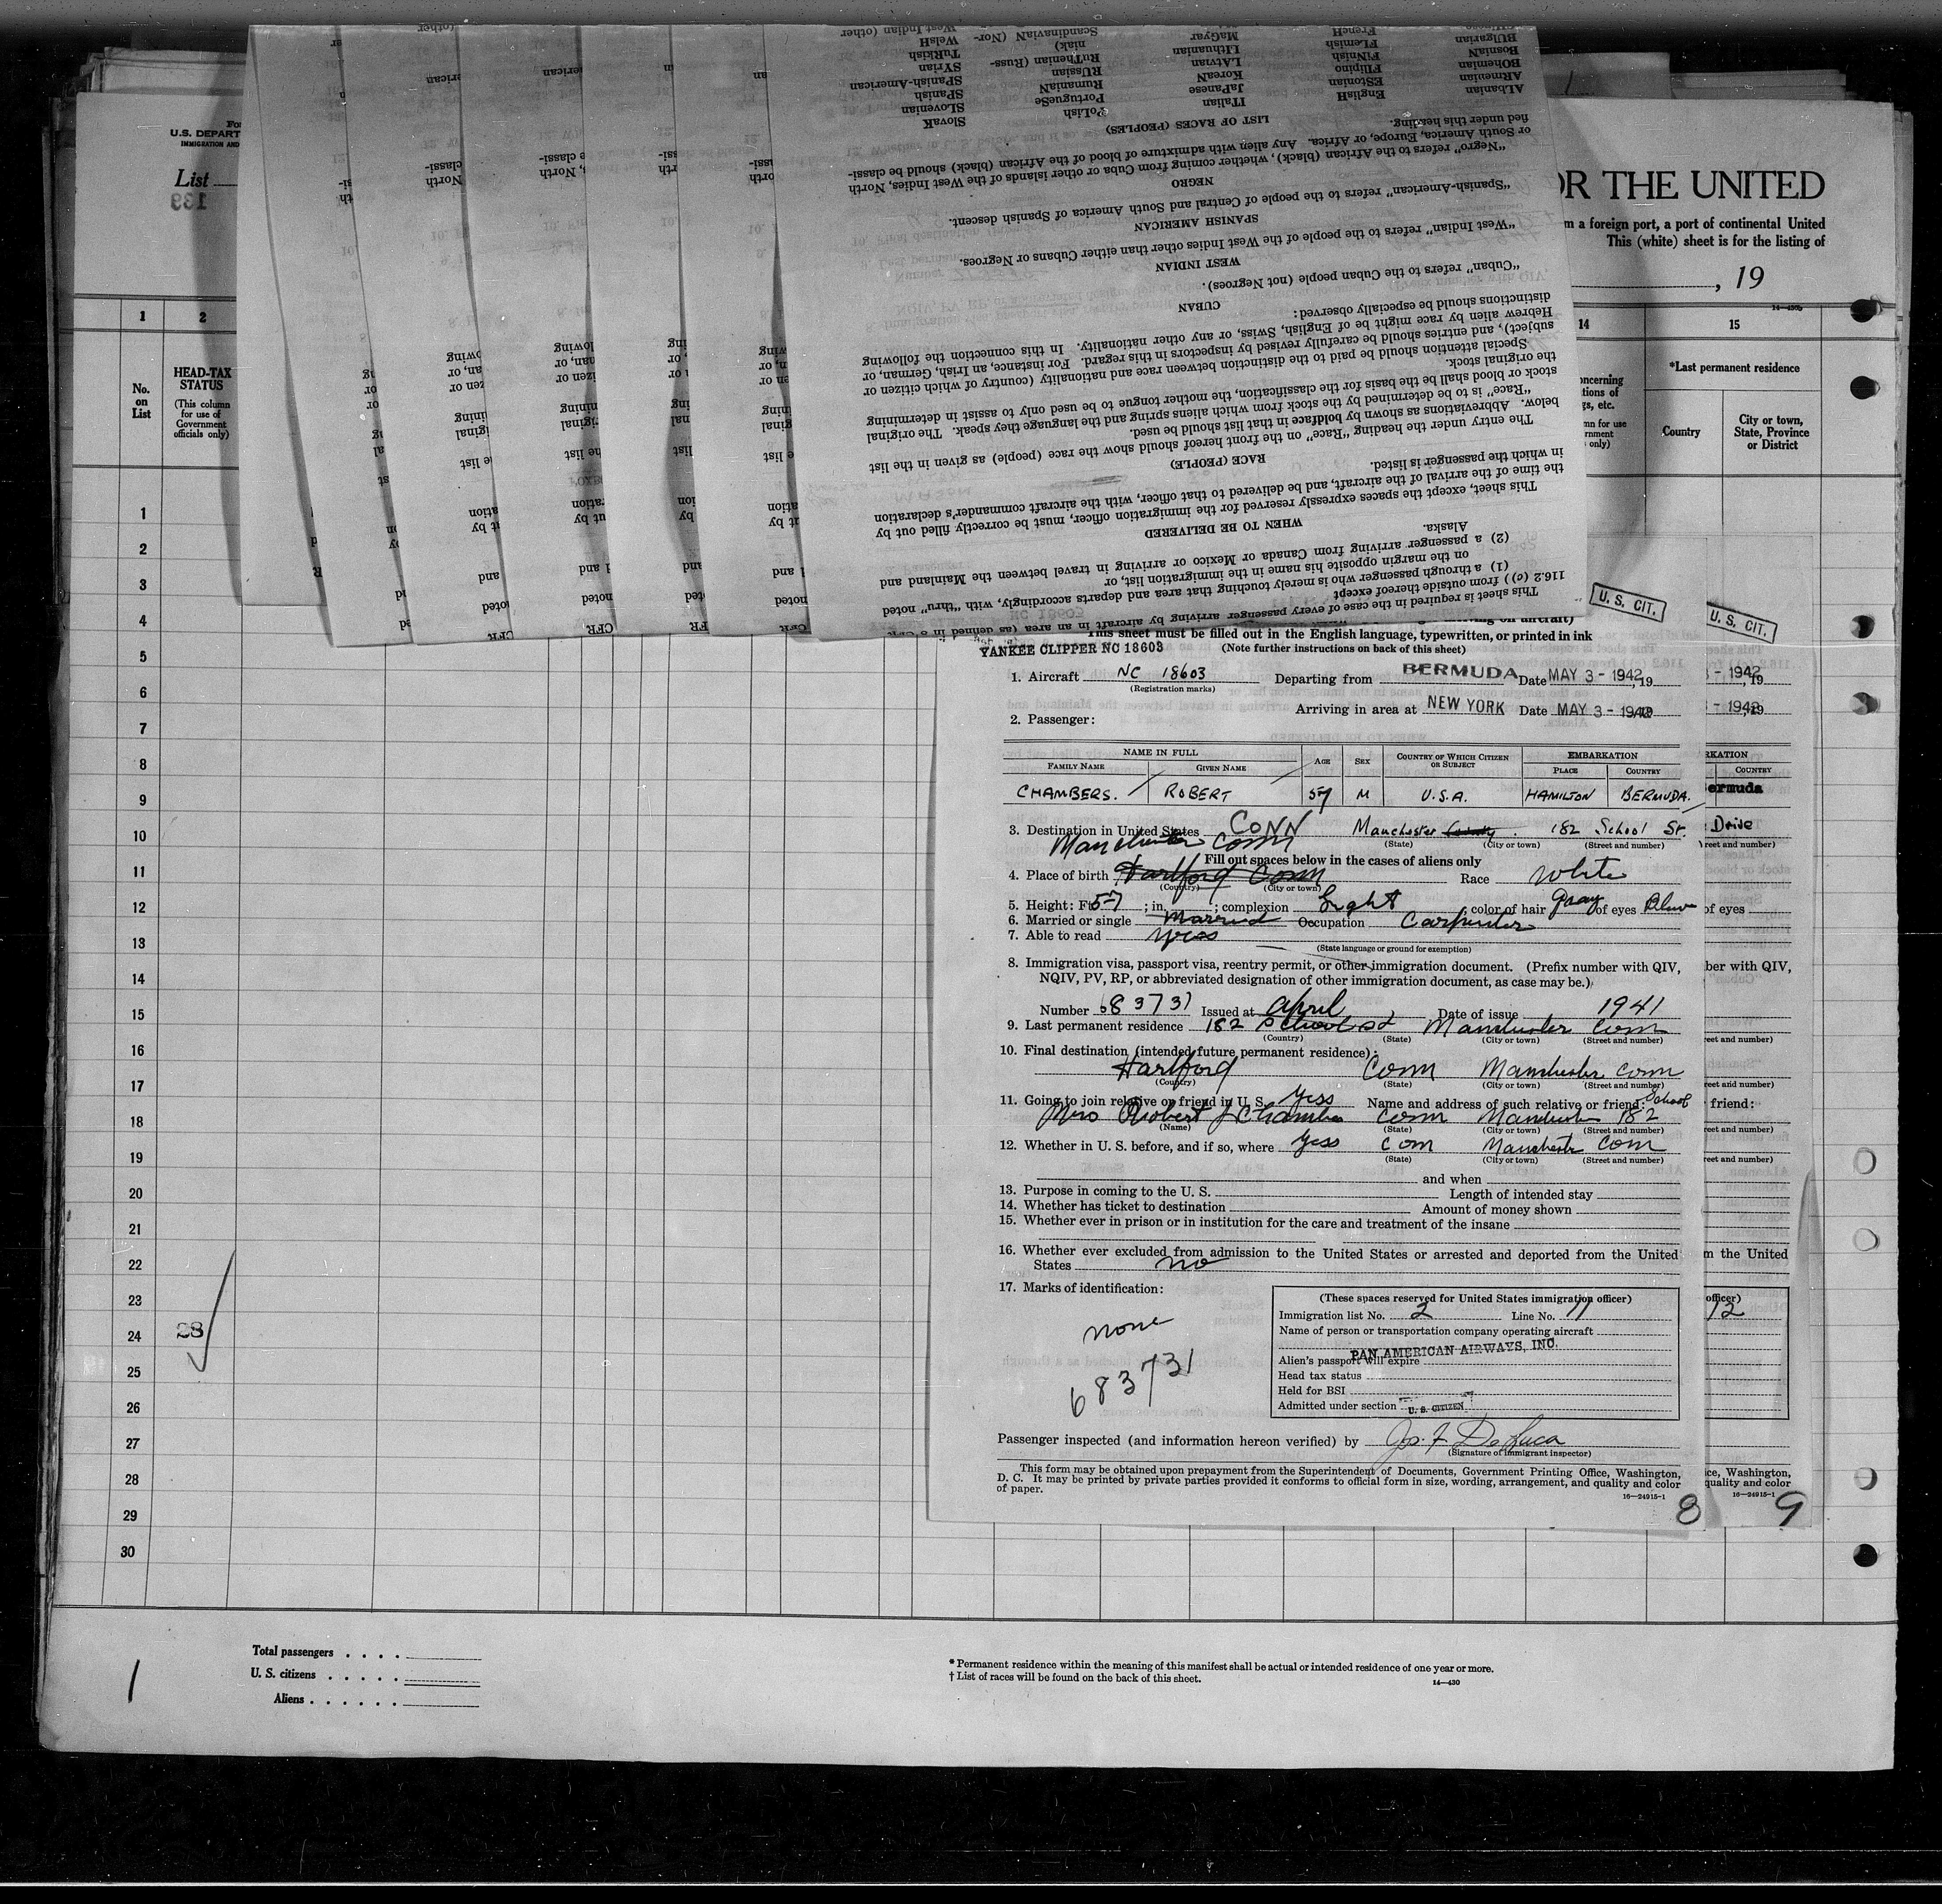 U.S. DEPART
IMMIGRATION AND
List
139
OR THE UNITED
m a foreign port, a port of continental United
This (white) sheet is for the listing of
, 19
1
2
14
15
No.
on
List
HEAD-TAX
STATUS
(This column
for use of
Government
officials only)
*Last permanent residence
Country
City or town,
State, Province
or District
1
2
3
4
5
6
7
8
9
10
11
12
13
14
15
16
17
18
19
20
21
22
23
24
25
26
27
28
29
30
28
This sheet is required in the case of every passenger arriving by aircraft in an area (as defined in 8 CFR
116.2 (c)) from outside thereof except
(1) a through passenger who is merely touching that area and departs accordingly, with "thru" noted
on the margin opposite his name in the immigration list, or
(2) a passenger arriving from Canada or Mexico or arriving in travel between the Mainland and
Alaska.
WHEN TO BE DELIVERED
This sheet, except the spaces expressly reserved for the immigration officer, must be correctly filled out by
the time of the arrival of the aircraft, and be delivered to that officer, with the aircraft commander's declaration
in which the passenger is listed.
RACE (PEOPLE)
The entry under the heading "Race" on the front hereof should show the race (people) as given in the list
below. Abbreviations as shown by boldface in that list should be used.
"Race" is to be determined by the stock from which aliens spring and the language they speak. The original
stock or blood shall be the basis for the classification, the mother tongue to be used only to assist in determining
the original stock.
Special attention should be paid to the distinction between race and nationality (country of which citizen or
subject), and entries should be carefully revised by inspectors in this regard. For instance, an Irish, German, or
Hebrew alien by race might be of English, Swiss, or any other nationality. In this connection the following
distinctions should be especially observed:
CUBAN
"Cuban" refers to the Cuban people (not Negroes).
WEST INDIAN
"West Indian" refers to the people of the West Indies other than either Cubans or Negroes.
SPANISH AMERICAN
"Spanish-American" refers to the people of Central and South America of Spanish descent.
NEGRO
"Negro" refers to the African (black), whether coming from Cuba or other islands of the West Indies, North
or South America, Europe, or Africa. Any alien with admixture of blood of the African (black) should be classi-
fied under this heading.
LIST OF RACES (PEOPLES)
ALbanian EnglisH ITalian PoLish SlovaK
ARmenian EStonian JaPanese PortugueSe SLOvenian
BOhemian FIlipino KoreaN RumaniaN SPaniSh
BosniaN FiNnish LAtvian RUssian SPanish-American
BUlgarian FLemish LIthuanian RuThenian (Russ- SYrian
FrencH MaGyar niak) TuRkish
ScandinaviaN (Nor- WelsH
West Indian (other
U. S. CIT.
U. S. CIT.
This sheet must be filled out in the English language, typewritten, or printed in ink
YANKEE CLIPPER NC 18603 (Note further instructions on back of this sheet)
1. Aircraft NC 18603 Departing from BERMUDA Date MAY 3 - 1942, 19
(Registration marks)
Arriving in area at NEW YORK Date MAY 3 - 1942
2. Passenger:
NAME IN FULL AGE SEX COUNTRY OF WHICH CITIZEN OR SUBJECT EMBARKATION
FAMILY NAME GIVEN NAME PLACE COUNTRY
CHAMBERS. ROBERT 57 M U.S.A. HAMILTON BERMUDA.
3. Destination in United States CONN Manchester County. 182 School St.
(State) (City or town) (Street and number)
Manchester Conn
Fill out spaces below in the cases of aliens only
4. Place of birth Hartford Conn Race White
(Country) (City or town)
5. Height: Ft. 57; in. ; complexion Light; color of hair Gray of eyes Blue
6. Married or single Married Occupation Carpenter
7. Able to read yess
(State language or ground for exemption)
8. Immigration visa, passport visa, reentry permit, or other immigration document. (Prefix number with QIV,
NQIV, PV, RP, or abbreviated designation of other immigration document, as case may be.)
Number 683731 Issued at April Date of issue 1941
9. Last permanent residence 182 School St Manchester Conn
(Country) (State) (City or town) (Street and number)
10. Final destination (intended future permanent residence):
Hartford Conn Manchester Conn
(Country) (State) (City or town) (Street and number)
11. Going to join relative or friend in U. S. Yess Name and address of such relative or friend: School
Mrs Robert J Chambers Conn Manchester 182
(Name) (State) (City or town) (Street and number)
12. Whether in U. S. before, and if so, where Yess Conn Manchester Conn
(State) (City or town) (Street and number)
and when
13. Purpose in coming to the U. S. Length of intended stay
14. Whether has ticket to destination Amount of money shown
15. Whether ever in prison or in institution for the care and treatment of the insane
16. Whether ever excluded from admission to the United States or arrested and deported from the United
States no
17. Marks of identification:
none
683731
(These spaces reserved for United States immigration officer)
Immigration list No. 2 Line No. 11
Name of person or transportation company operating aircraft
PAN AMERICAN AIRWAYS, INC.
Alien's passport will expire
Head tax status
Held for BSI
Admitted under section U. S. CITIZEN
Passenger inspected (and information hereon verified) by Jos. F. DeLuca
(Signature of immigrant inspector)
This form may be obtained upon prepayment from the Superintendent of Documents, Government Printing Office, Washington,
D. C. It may be printed by private parties provided it conforms to official form in size, wording, arrangement, and quality and color
of paper.
16—24915-1
8
- 1942, 19
- 1942, 19
RKATION
COUNTRY
ermuda
Drive
reet and number)
of eyes
ber with QIV,
reet and number)
reet and number)
friend:
reet and number)
reet and number)
m the United
officer)
12
ice, Washington,
quality and color
16—24915-1
9
Total passengers . . . .
U. S. citizens . . . . .
Aliens . . . . . .
1
* Permanent residence within the meaning of this manifest shall be actual or intended residence of one year or more.
† List of races will be found on the back of this sheet.
14—430